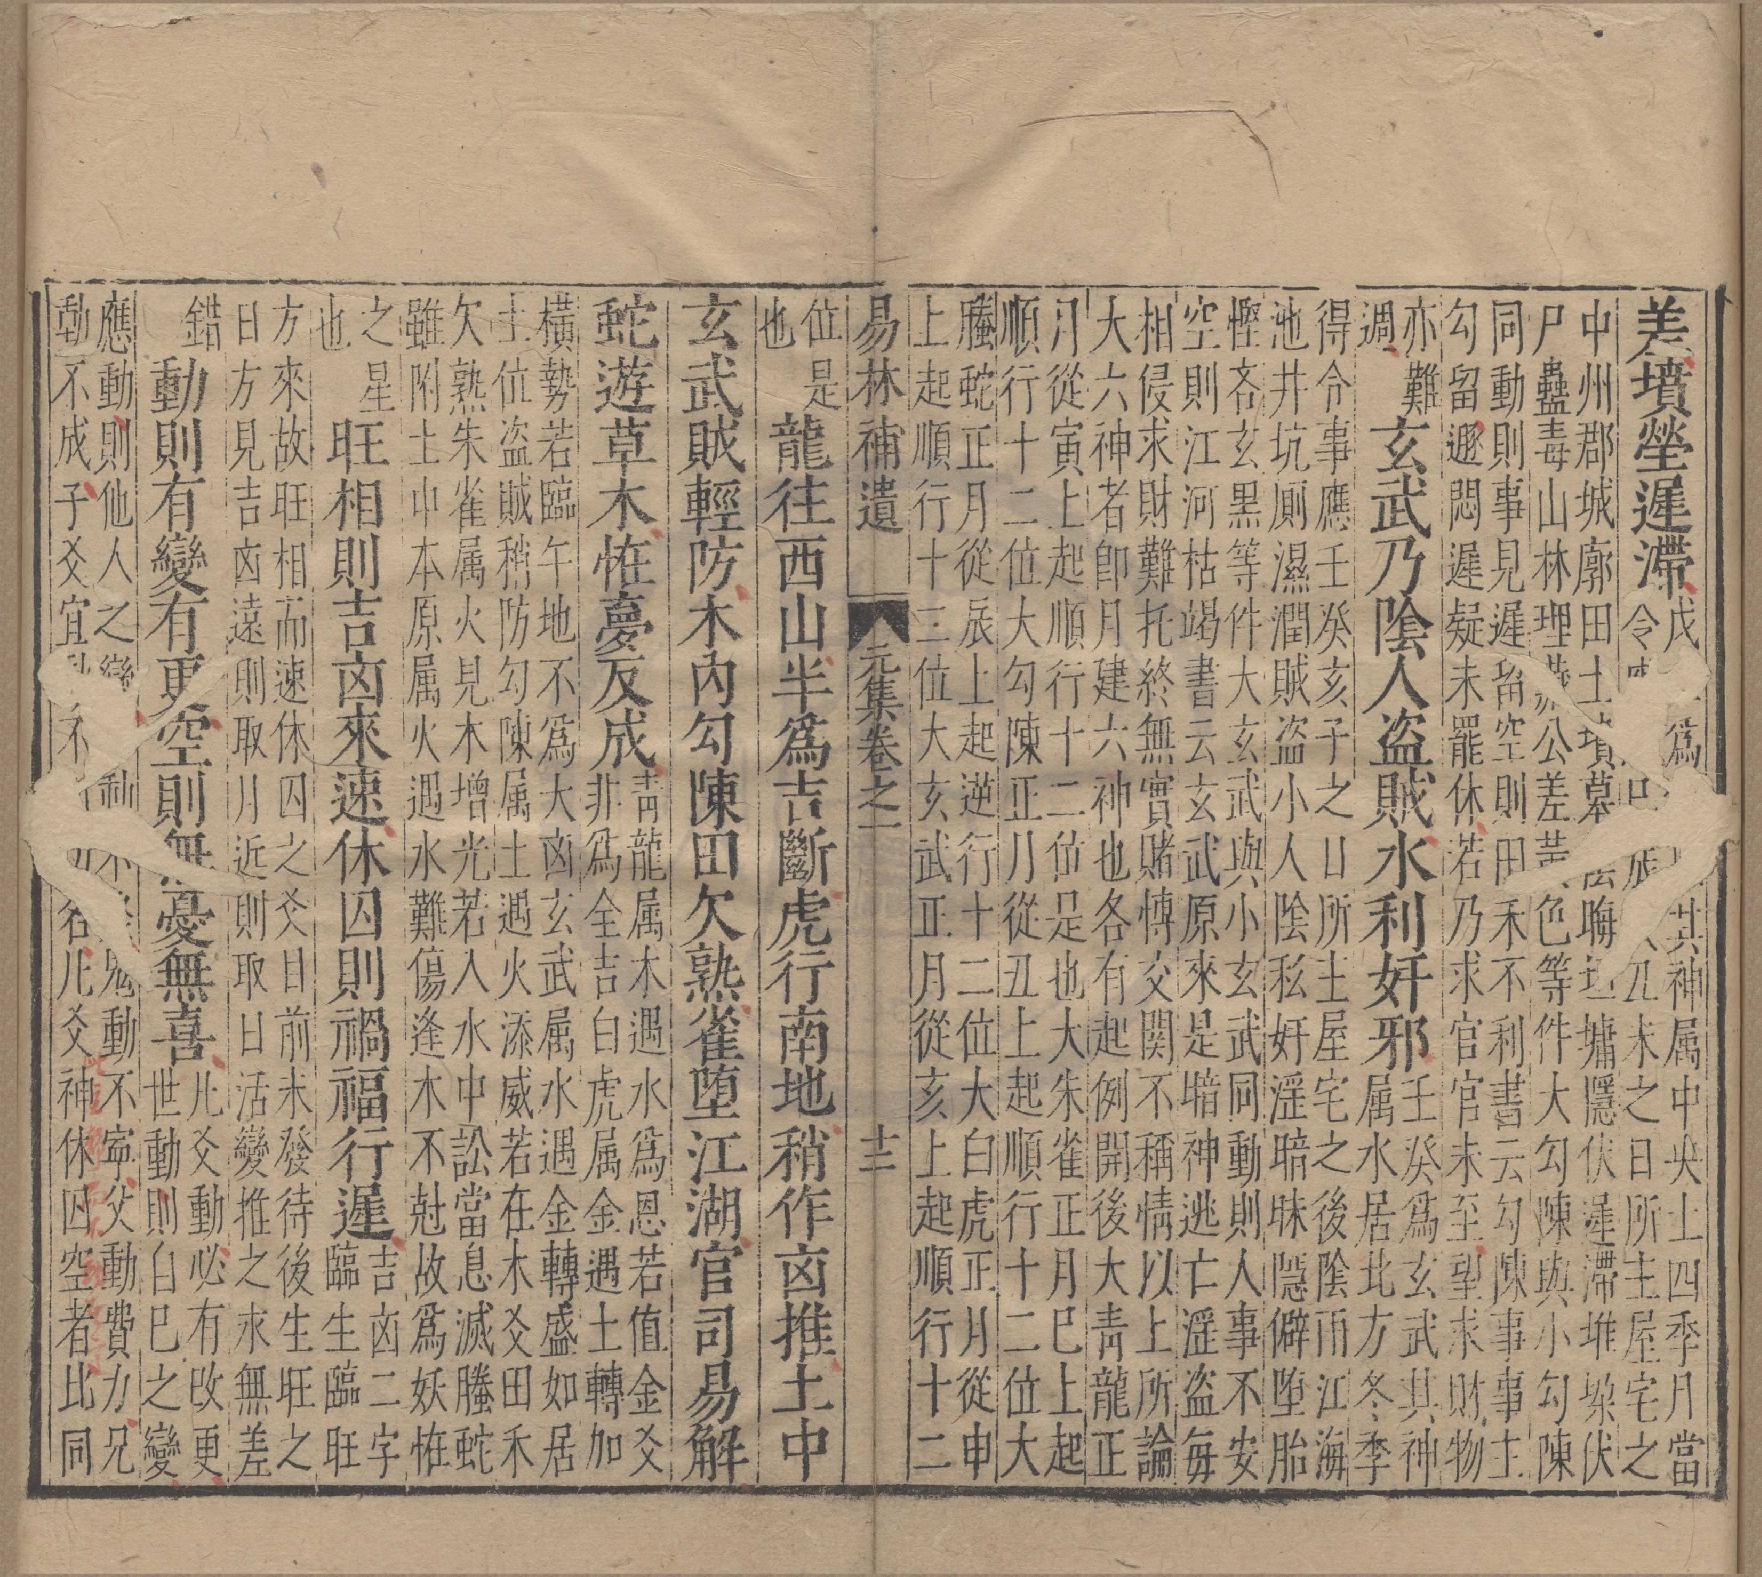 差墳塋遲滯
戊 爲 其神属中央土四季月當
令 未之日所主屋宅之
中州郡城廓田土墳墓 陰晦 墻隱伏遲滯堆垜伏
尸蠱毒山林埋 公差黃色等件大勾陳與小勾陳
同動則事見遲畱空則田禾不利書云勾陳事事主
勾留邅悶遲疑未罷休若乃求官官未至望求財物
亦難
週
玄武乃陰人盜賊水利奸邪
壬癸爲玄武其神
属水居北方冬季
得令事應壬癸亥子之日所主屋宅之後陰雨江海
池井坑厠濕潤賊盜小人陰私奸淫暗昧隱僻墮胎
慳吝玄黑等件大玄武與小玄武同動則人事不安
空則江河枯竭書云玄武原來是暗神逃亡淫盜每
相侵求財難托終無實賭博交関不稱情以上所論
大六神者卽月建六神也各有起例開後大靑龍正
月從寅上起順行十二位是也大朱雀正月巳上起
順行十二位大勾陳正月從丑上起順行十二位大
螣蛇正月從辰上起逆行十二位大白虎正月從申
上起順行十三位大玄武正月從亥上起順行十二
易林補遺 元集卷之一 十二
位是
也
龍往西山半爲吉斷虎行南地稍作凶推土中
玄武賊輕防木內勾陳田欠熟雀墮江湖官司易解
蛇遊草木恠夢反成
靑龍属木遇水爲恩若值金爻
非爲全吉白虎属金遇土轉加
橫勢若臨午地不爲大凶玄武属水遇金轉盛如居
土位盜賊稍防勾陳属土遇火添威若在木爻田禾
欠熟朱雀属火見木增光若入水中訟當息滅螣蛇
雖附土中本原属火遇水難傷逢木不尅故爲妖恠
之星
也
旺相則吉凶來速休囚則禍福行遲
吉凶二字
臨生臨旺
方來故旺相而速休囚之爻目前未發待後生旺之
日方見吉凶遠則取月近則取日活變推之永無差
錯
動則有變有更空則無憂無喜
凡爻動必有改更
世動則自巳之變
應動則他人之變 動不寧父動費力兄
動不成子爻宜 凡爻神休囚空者比同